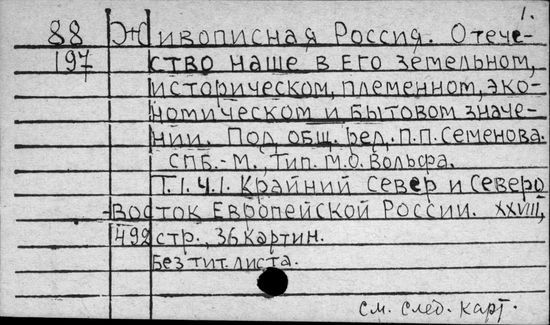 1.
88 Живописная Россия. Отече-
197 ство наше в его земельном,
историческом, племенном, эко-
номическом и бытовом значе-
нии. Под общ. ред. П.П. Семенова.
СПБ.-М., Тип. М.О. Вольфа.
Т.1.Ч.1. Крайний Север и Северо
-Восток Европейской России. XXVIII,
492 стр., 36 картин.
Без тит. листа.
см. след. карт.